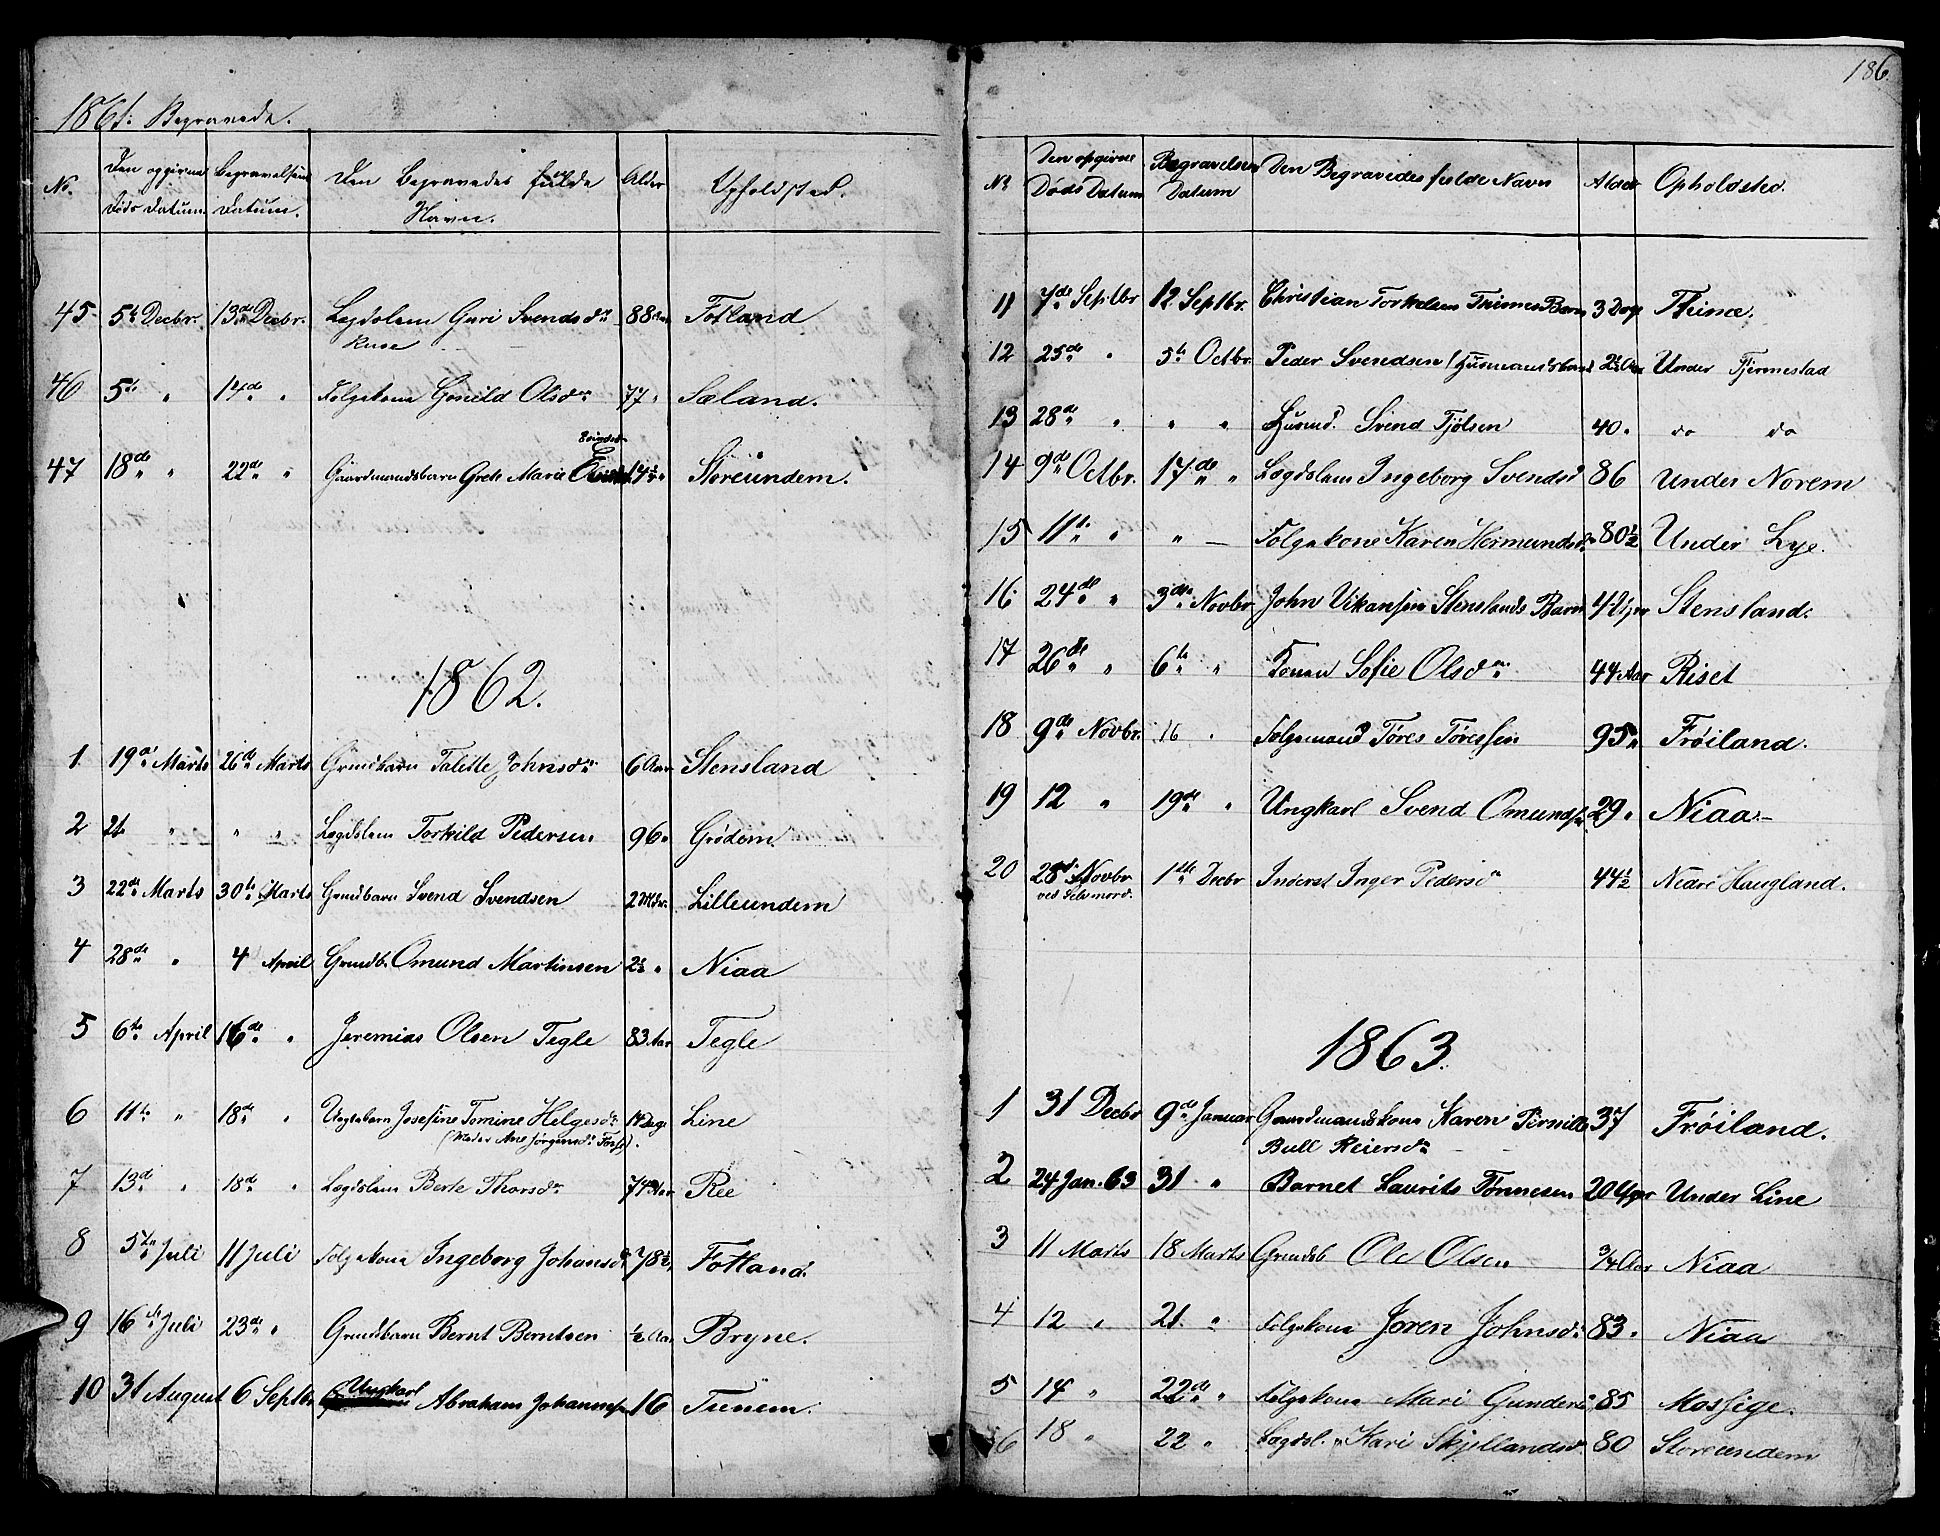 1861. Begravede.
No. Den opgivne Døds Datum. Begravelsens Datum. Den Begravedes fulde Navn. Alder Opholdsted.
45 5te Decbr. 13de Decbr. Lægdslem Guri Svendsdr 88 Aar Fotland
46 5te " 14de " Folgekone Gunild Olsdr 77 " Sæland.
47 18de " 22de " Gaardmandsbarn Grete Maria 14 " Storeundem.
1862.
1 19de Marts 26de Marts Grmdbarn Talette Johnsdr 6 Aar Stensland
2 21 " " " Lægdslem Torkild Pedersen 96 " Grødem.
3 22de Marts 30te Marts Grmdbarn Svend Svendsen 2 Lilleundem
4 28de " 4 April Grmdb. Omund Martinsen 2½ " Niaa
5 6te April 16de " Jeremias Olsen Tegle 83 Aar Tegle
6 11te " 18de " Uægtebarn Josefine Tomine Helgesdr 14 Dage Line
(Moder Ane Jørgensdr
7 13de " 18de " Lægdslem Berte Thorsdr 74 Aar Ree
8 5te Juli 11 Juli Folgekone Ingeborg Johansdr 78½ Fotland.
9 16de Juli 23de " Grmdbarn Bernt Berntsen ½ Aar Bryne.
10 31 August 6 Septbr Ungkarl Abraham Johannesen 16 Tunem.
186.
No Den opgivne Døds Datum Begravelsens Datum Den Begravedes fulde Navn Alder Opholdsted.
11 7de Septbr 12 Septbr. Christian Torkelsen Thimes Barn 3 Dage Thime.
12 25de " 5te Octbr. Peder Svendsen (Husmandsbarn 2½ Aar Under Tjermestad
13 28de " " " Husmd. Svend Tjølsen 40 " do do
14 9de Octbr. 17de " Lægdslem Ingeborg Svendsd 86 Under Norem
15 11te " " — Folgekone Karen Hermundsdr 80½ Under Lye.
16 24de " 3die Novbr John Vikansen Stenslands Barn 4 Uger Stensland.
17 26de " 6te " Konen Sofie Olsdr 44 Aar Riset
18 9de Novbr. 16 " Folgemand Tøres Tøressen 95 " Frøiland.
19 12 " 19de " Ungkarl Svend Omundsen 29 " Niaa.—
20 28de Novbr 1ste Decbr Inderst Inger Pedersdr 44½ Nedre Haugland.
ved Selvmord.
1863.
1 31 Decbr 9de Januar Gaardmandskone Karen Pernille 37 Frøiland.
Bull Reiersdr
2 24 Jan. 63 31 " Barnet Laurits Tønnesen 20 Uger Under Line
3 11 Marts 18 Marts Grmdsb Ole Olsen ¾ Aar Niaa
4 12 " 21 " Folgekone Joren Johnsdr 83 " Niaa
5 14 " 22de " Folgekone Mari Gundersdr 85 Mossige.
6 18 " 22 " Lægdsl. Kari Skjellandsdr 80 Storeundem